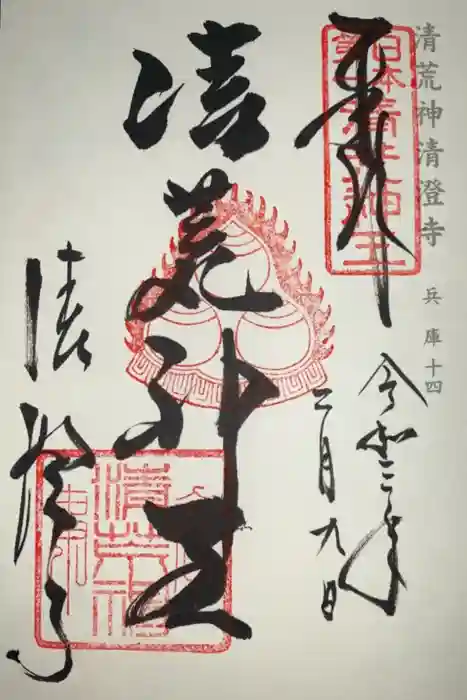 清荒神清澄寺 兵庫十四
奉拝
日本清荒神王
令和三年
二月九日
清荒神王
清澄寺